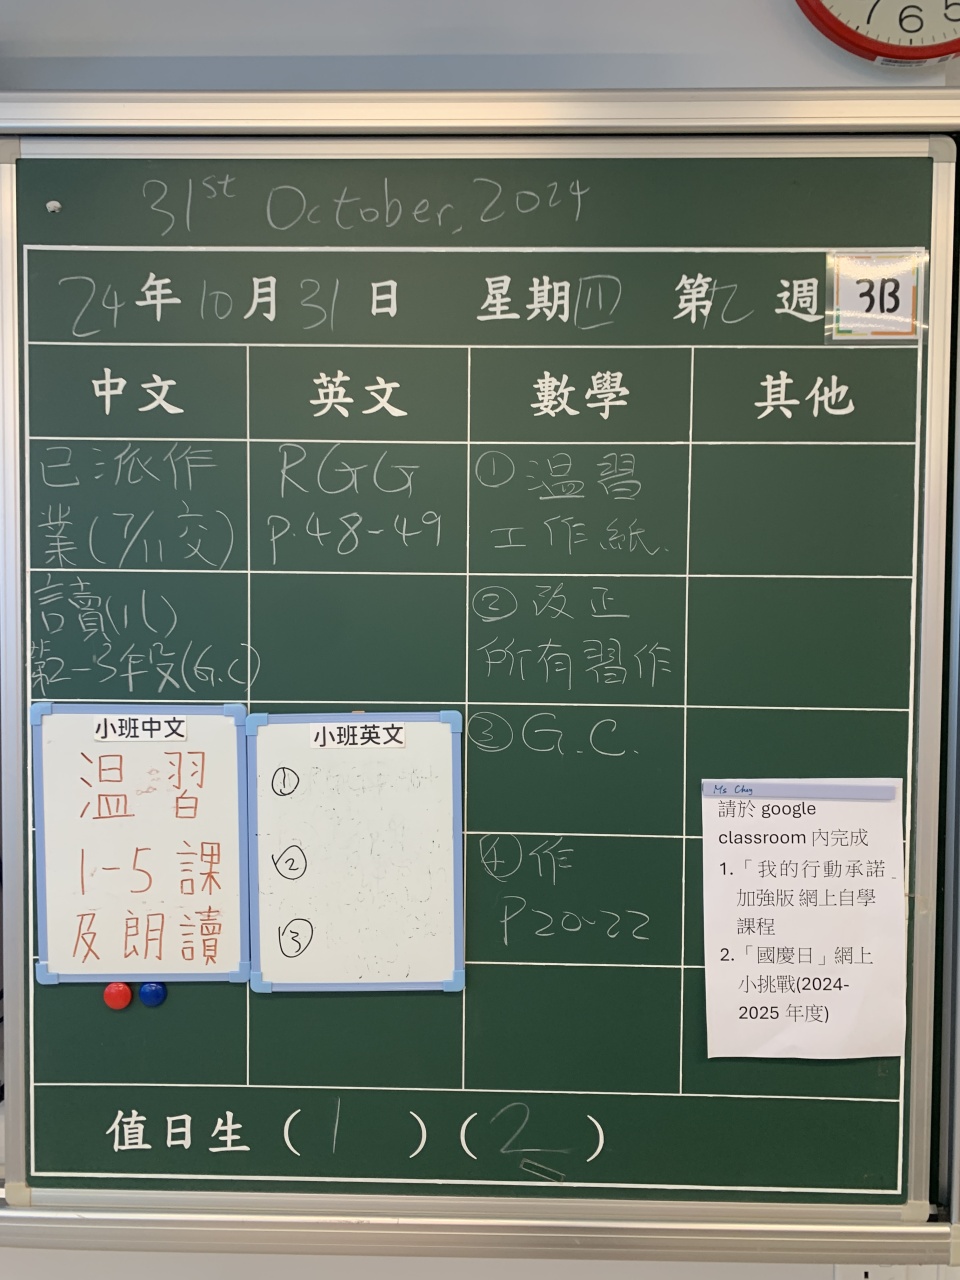 7 6 5
31st October, 2024
24年10月31日 星期四 第九週 3B
中文 英文 數學 其他
已派作
業(7/11交)
讀(八)
第2-3年段(G.C)
RGG
P.48-49
① 溫習
工作紙.
② 改正
所有習作
③ G.C.
④ 作
P20-22
小班中文
溫習
1-5課
及朗讀
小班英文
①
②
③
請於 google
classroom 內完成
1.「我的行動承諾」
加強版 網上自學
課程
2.「國慶日」網上
小挑戰(2024-
2025 年度)
值日生 ( 1 ) ( 2 )